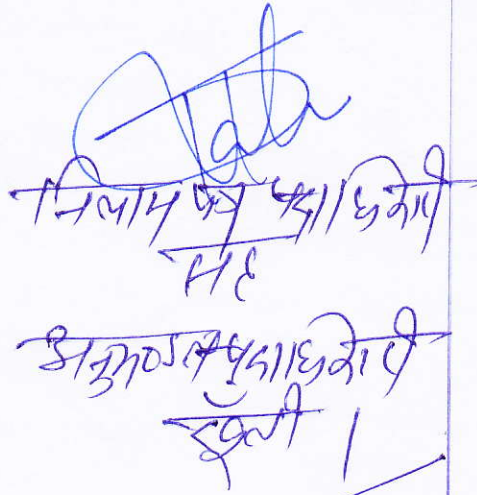 निलाम पत्र पदाधिकारी
सह
अनुमण्डल पदाधिकारी